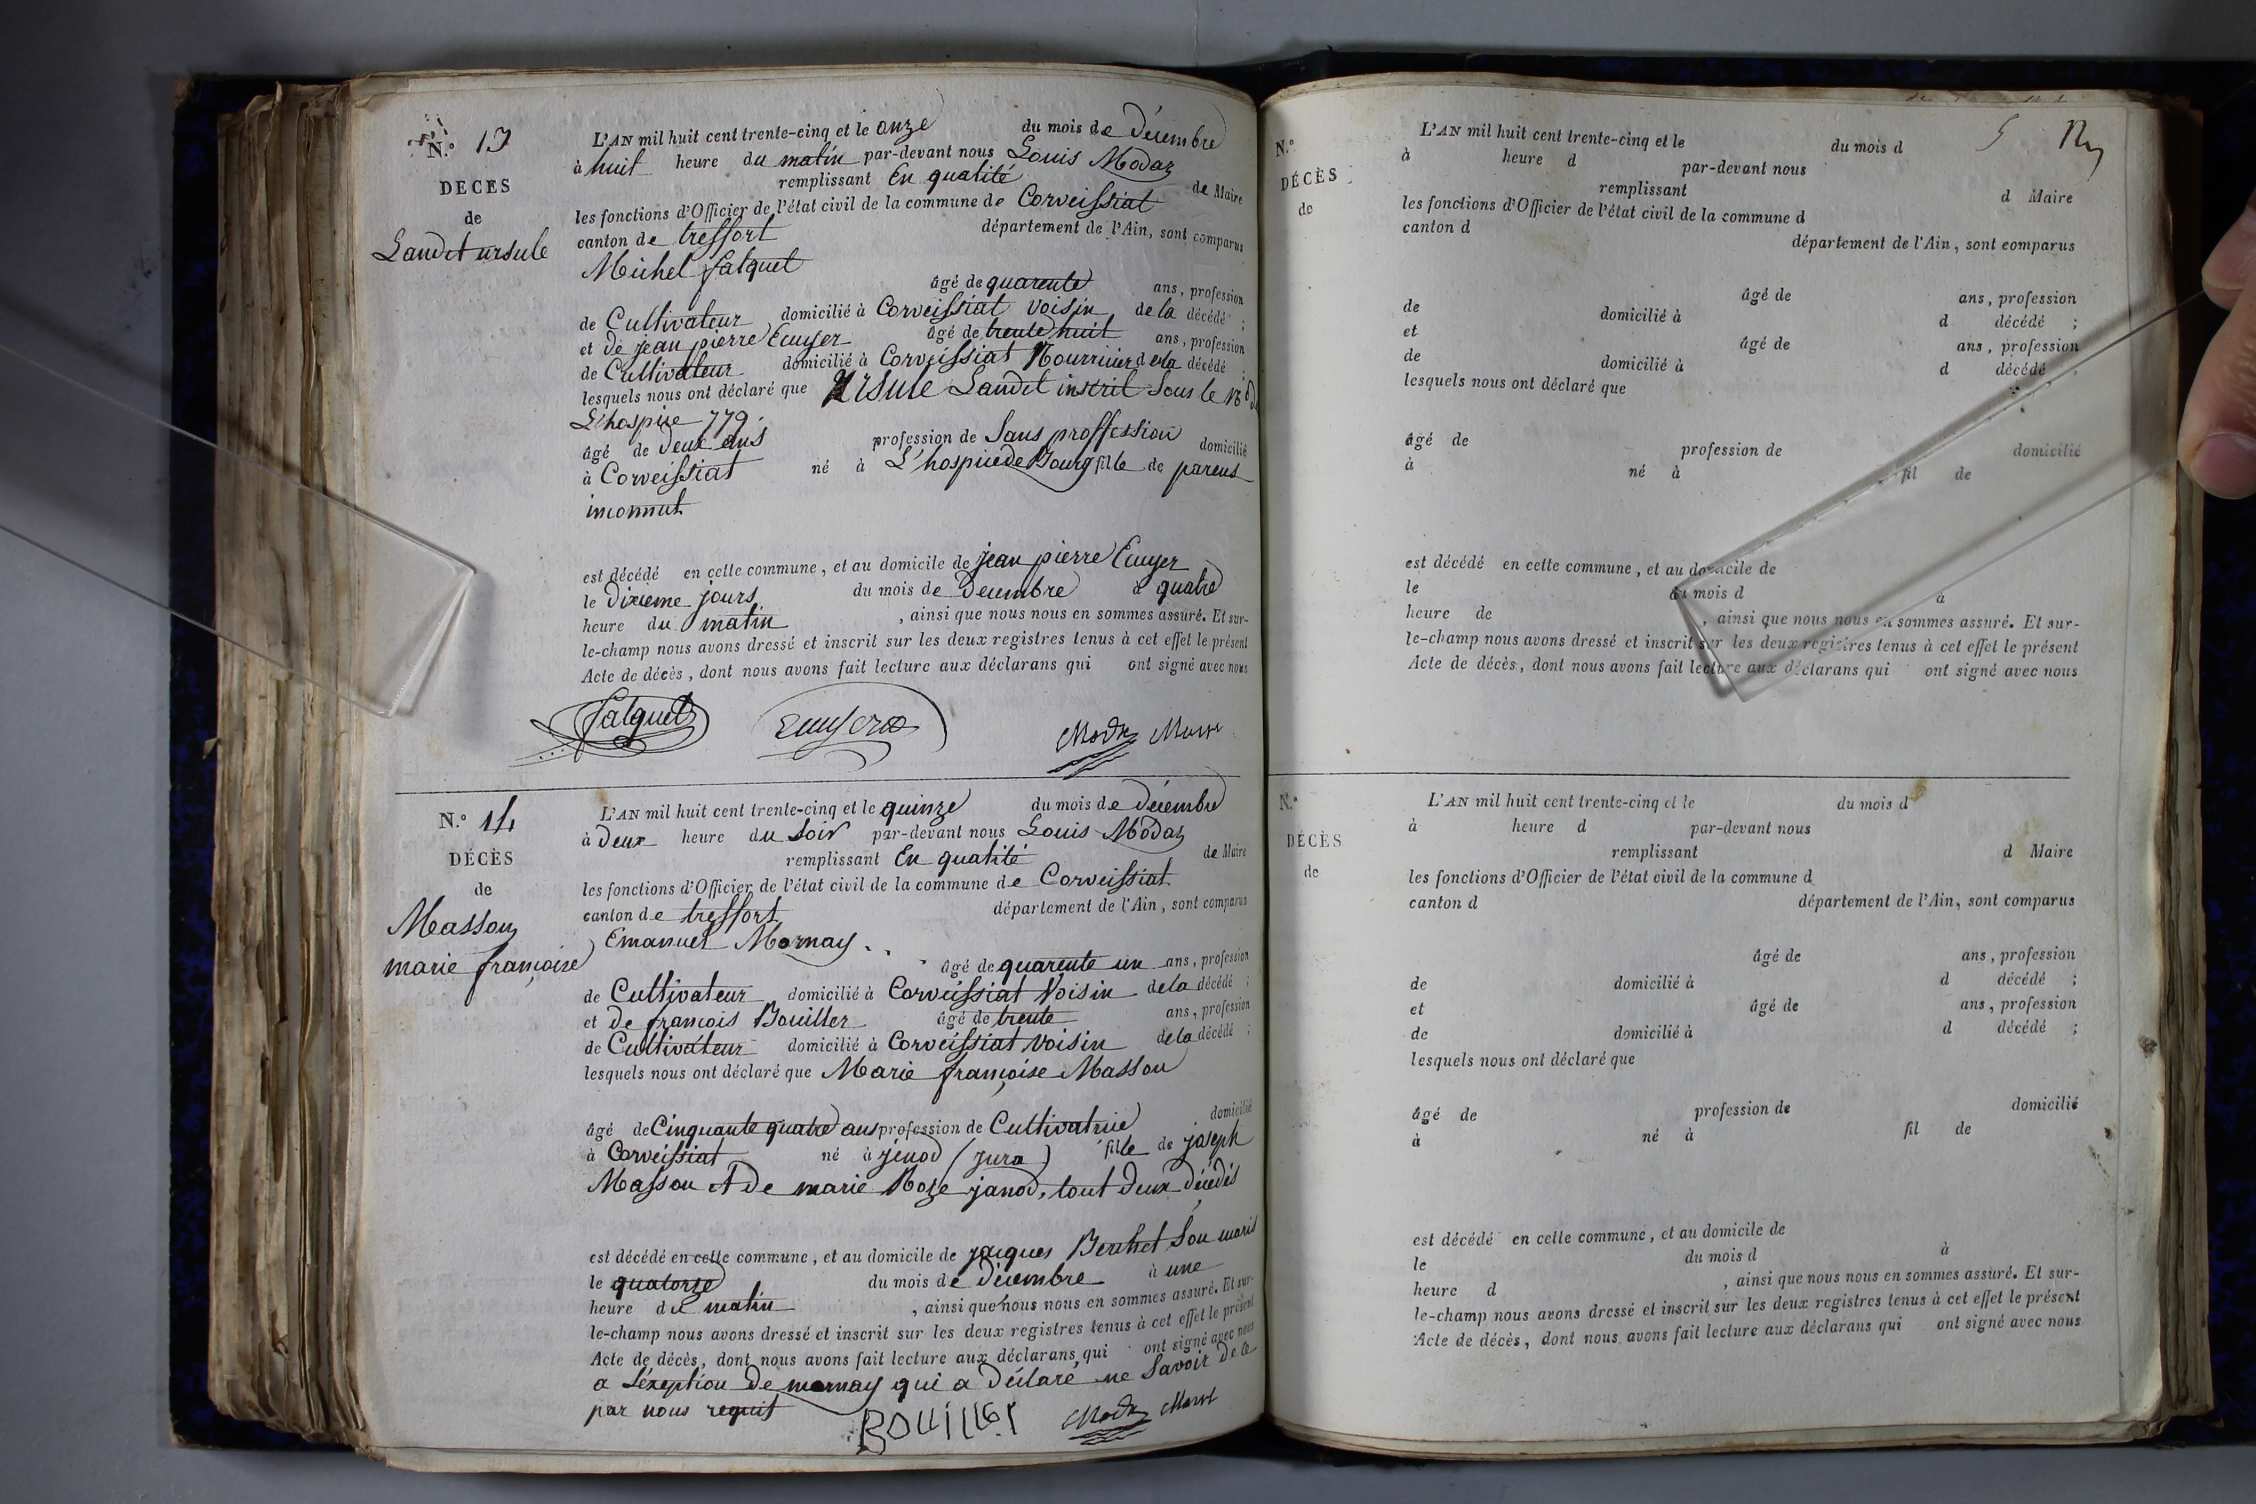 N.° 13
DECES
de
Landit ursule
L'AN mil huit cent trente-cinq et le onze du mois de Décembre
à huit heure du matin par-devant nous Louis Modaz
remplissant En qualité de Maire
les fonctions d'Officier de l'état civil de la commune de Corveissiat
canton de treffort département de l'Ain, sont comparus
Michel falquet
âgé de quarente ans, profession
de Cultivateur domicilié à Corveissiat voisin de la décédé ;
et de jean pierre Ecuyer âgé de trente huit ans, profession
de Cultivateur domicilié à Corveissiat Nourricier de la décédé ;
lesquels nous ont déclaré que Ursule Landit inscrit Sous le N°
L'hospice 779.
âgé de Deux ans profession de Sans proffession domicilié
à Corveissiat né à L'hospice de Bourg fille de parens
inconnut
est décédé en cette commune, et au domicile de jean pierre Ecuyer
le Dixieme jours du mois de Decembre à quatre
heure du matin , ainsi que nous nous en sommes assuré. Et sur-
le-champ nous avons dressé et inscrit sur les deux registres tenus à cet effet le présent
Acte de décès, dont nous avons fait lecture aux déclarans qui ont signé avec nous
falquet Ecuyer Modaz Maire
N.° 14
DÉCÈS
de
Masson
marie françoise
L'AN mil huit cent trente-cinq et le quinze du mois de Décembre
à Deux heure du Soir par-devant nous Louis Modaz
remplissant En qualité de Maire
les fonctions d'Officier de l'état civil de la commune de Corveissiat
canton de treffort département de l'Ain, sont comparus
Emanuel Mornay
âgé de quarente un ans, profession
de Cultivateur domicilié à Corveissiat Voisin de la décédé ;
et de francois Bouiller âgé de trente ans, profession
de Cultivateur domicilié à Corveissiat voisin de la décédé ;
lesquels nous ont déclaré que Marie françoise Masson
âgé de Cinquante quatre ans profession de Cultivatrice domicilié
à Corveissiat né à jenod (jura) fille de joseph
Masson et De marie Roze janod, tout Deux Décédés
est décédé en cette commune, et au domicile de jacques Berthet Son maris
le quatorze du mois de Décembre à une
heure du matin , ainsi que nous nous en sommes assuré. Et sur-
le-champ nous avons dressé et inscrit sur les deux registres tenus à cet effet le présent
Acte de décès, dont nous avons fait lecture aux déclarans qui ont signé avec nous
a L'éxeption De mornay qui a Déclaré ne Savoir De ce
par nous requit
BOUILLEr Modaz Maire
N.°
DÉCÈS
de
L'AN mil huit cent trente-cinq et le du mois d
à heure d par-devant nous
remplissant d Maire
les fonctions d'Officier de l'état civil de la commune d
canton d département de l'Ain, sont comparus
âgé de ans, profession
de domicilié à d décédé ;
et âgé de ans, profession
de domicilié à d décédé
lesquels nous ont déclaré que
âgé de profession de domicilié
à né à fil de
est décédé en cette commune, et au domicile de
le du mois d à
heure de , ainsi que nous nous en sommes assuré. Et sur-
le-champ nous avons dressé et inscrit sur les deux registres tenus à cet effet le présent
Acte de décès, dont nous avons fait lecture aux déclarans qui ont signé avec nous
N.°
DÉCÈS
de
L'AN mil huit cent trente-cinq et le du mois d
à heure d par-devant nous
remplissant d Maire
les fonctions d'Officier de l'état civil de la commune d
canton d département de l'Ain, sont comparus
âgé de ans, profession
de domicilié à d décédé ;
et âgé de ans, profession
de domicilié à d décédé ;
lesquels nous ont déclaré que
âgé de profession de domicilié
à né à fil de
est décédé en cette commune, et au domicile de
le du mois d à
heure d , ainsi que nous nous en sommes assuré. Et sur-
le-champ nous avons dressé et inscrit sur les deux registres tenus à cet effet le présent
Acte de décès, dont nous avons fait lecture aux déclarans qui ont signé avec nous